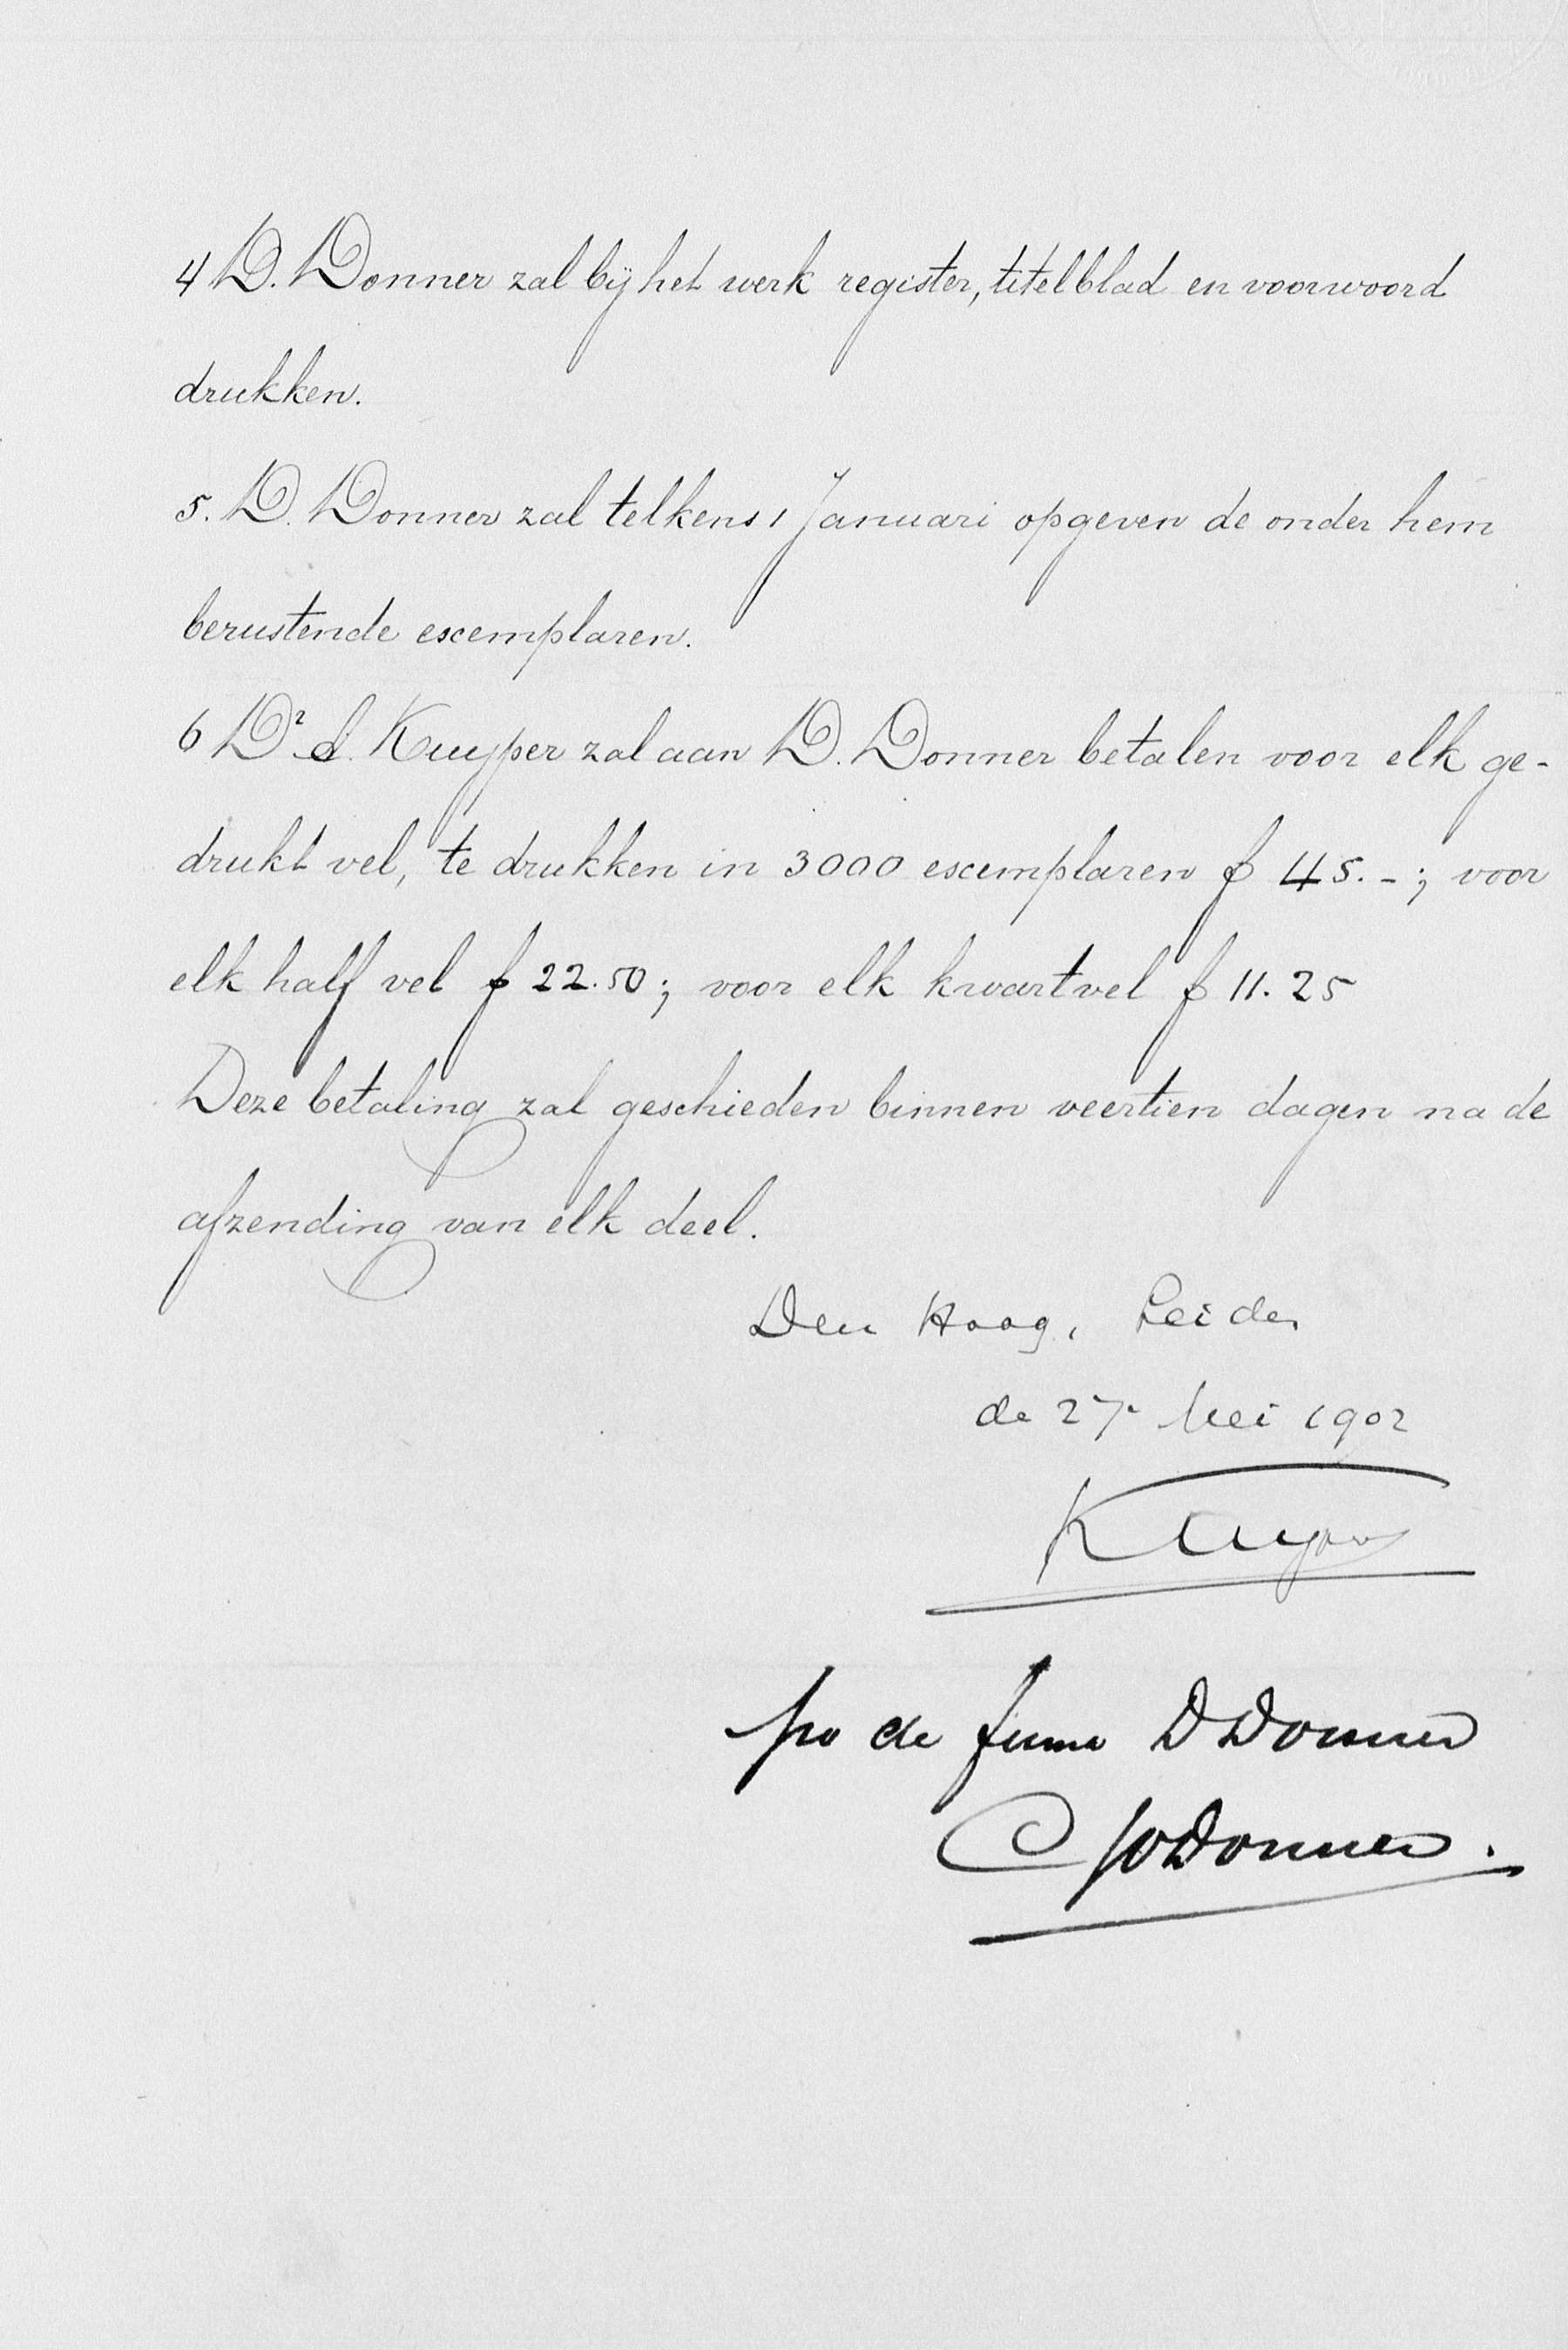 4 D. Donner zal bij het werk register, titelblad en voorwoord
drukken.
5. D. Donner zal telkens 1 Januari opgeven de onder hem
berustende exemplaren.
6 Dr A. Kuyper zal aan D. Donner betalen voor elk ge-
drukt vel, te drukken in 3000 exemplaren f 45.-; voor
elk half vel f 22.50; voor elk kwartvel f 11.25
Deze betaling zal geschieden binnen veertien dagen na de
afzending van elk deel.
Den Haag, Leiden
de 27 Mei 1902
Kuyper
pro de firma D Donner
Donner.